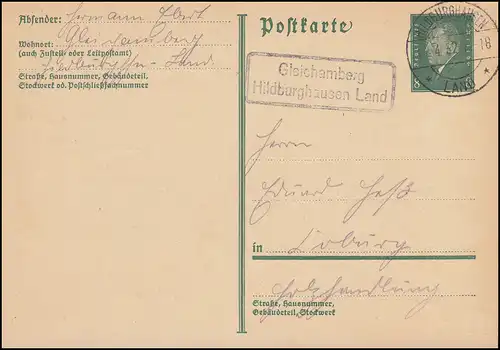 Absender: Hermann Ebert
Wohnort: Gleichamberg
(auch Zustell- oder Leitpostamt)
Hildburghsn - Land
Straße, Hausnummer, Gebäudeteil,
Stockwerk od. Postschließfachnummer
Postkarte
HILDBURGHAUSEN
LAND
8
Gleichamberg
Hildburghausen Land
Herrn
Eduard Heß
in Coburg
Holzhandlung
Straße, Hausnummer,
Gebäudeteil, Stockwerk